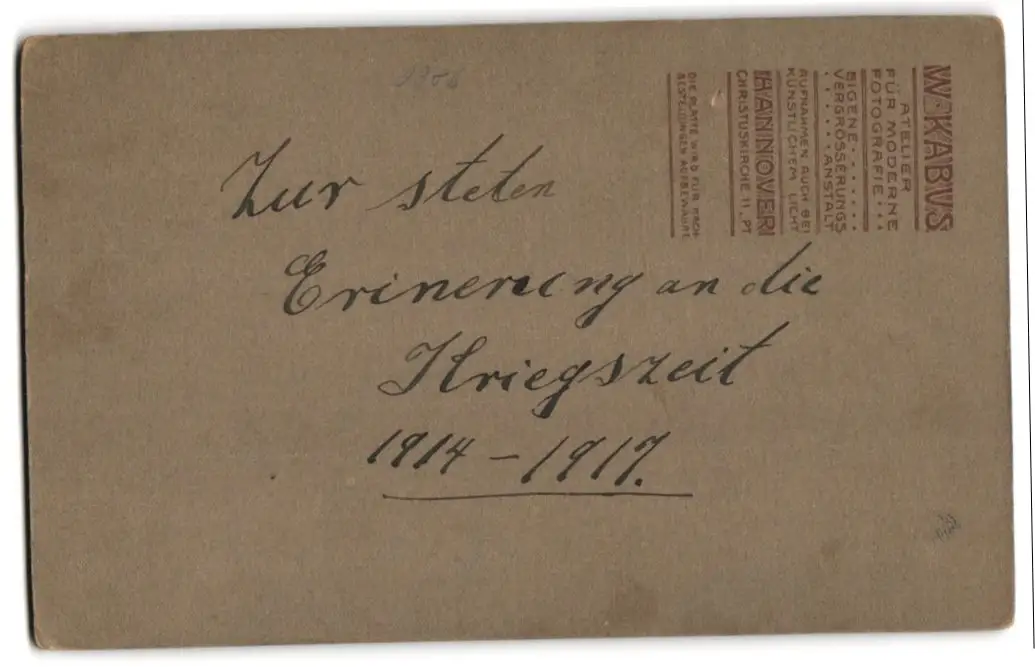 Zur steten
Erinerung an die
Kriegszeit
1914 – 1917.
W·KABVS
ATELIER
FÜR MODERNE
FOTOGRAFIE
EIGENE
VERGRÖSSERUNGS
ANSTALT
AUFNAHMEN AUCH BEI
KÜNSTLICHEM LICHT
HANNOVER
CHRISTUSKIRCHE 11, PT
DIE PLATTE WIRD FÜR NACH-
BESTELLUNGEN AUFBEWAHRT